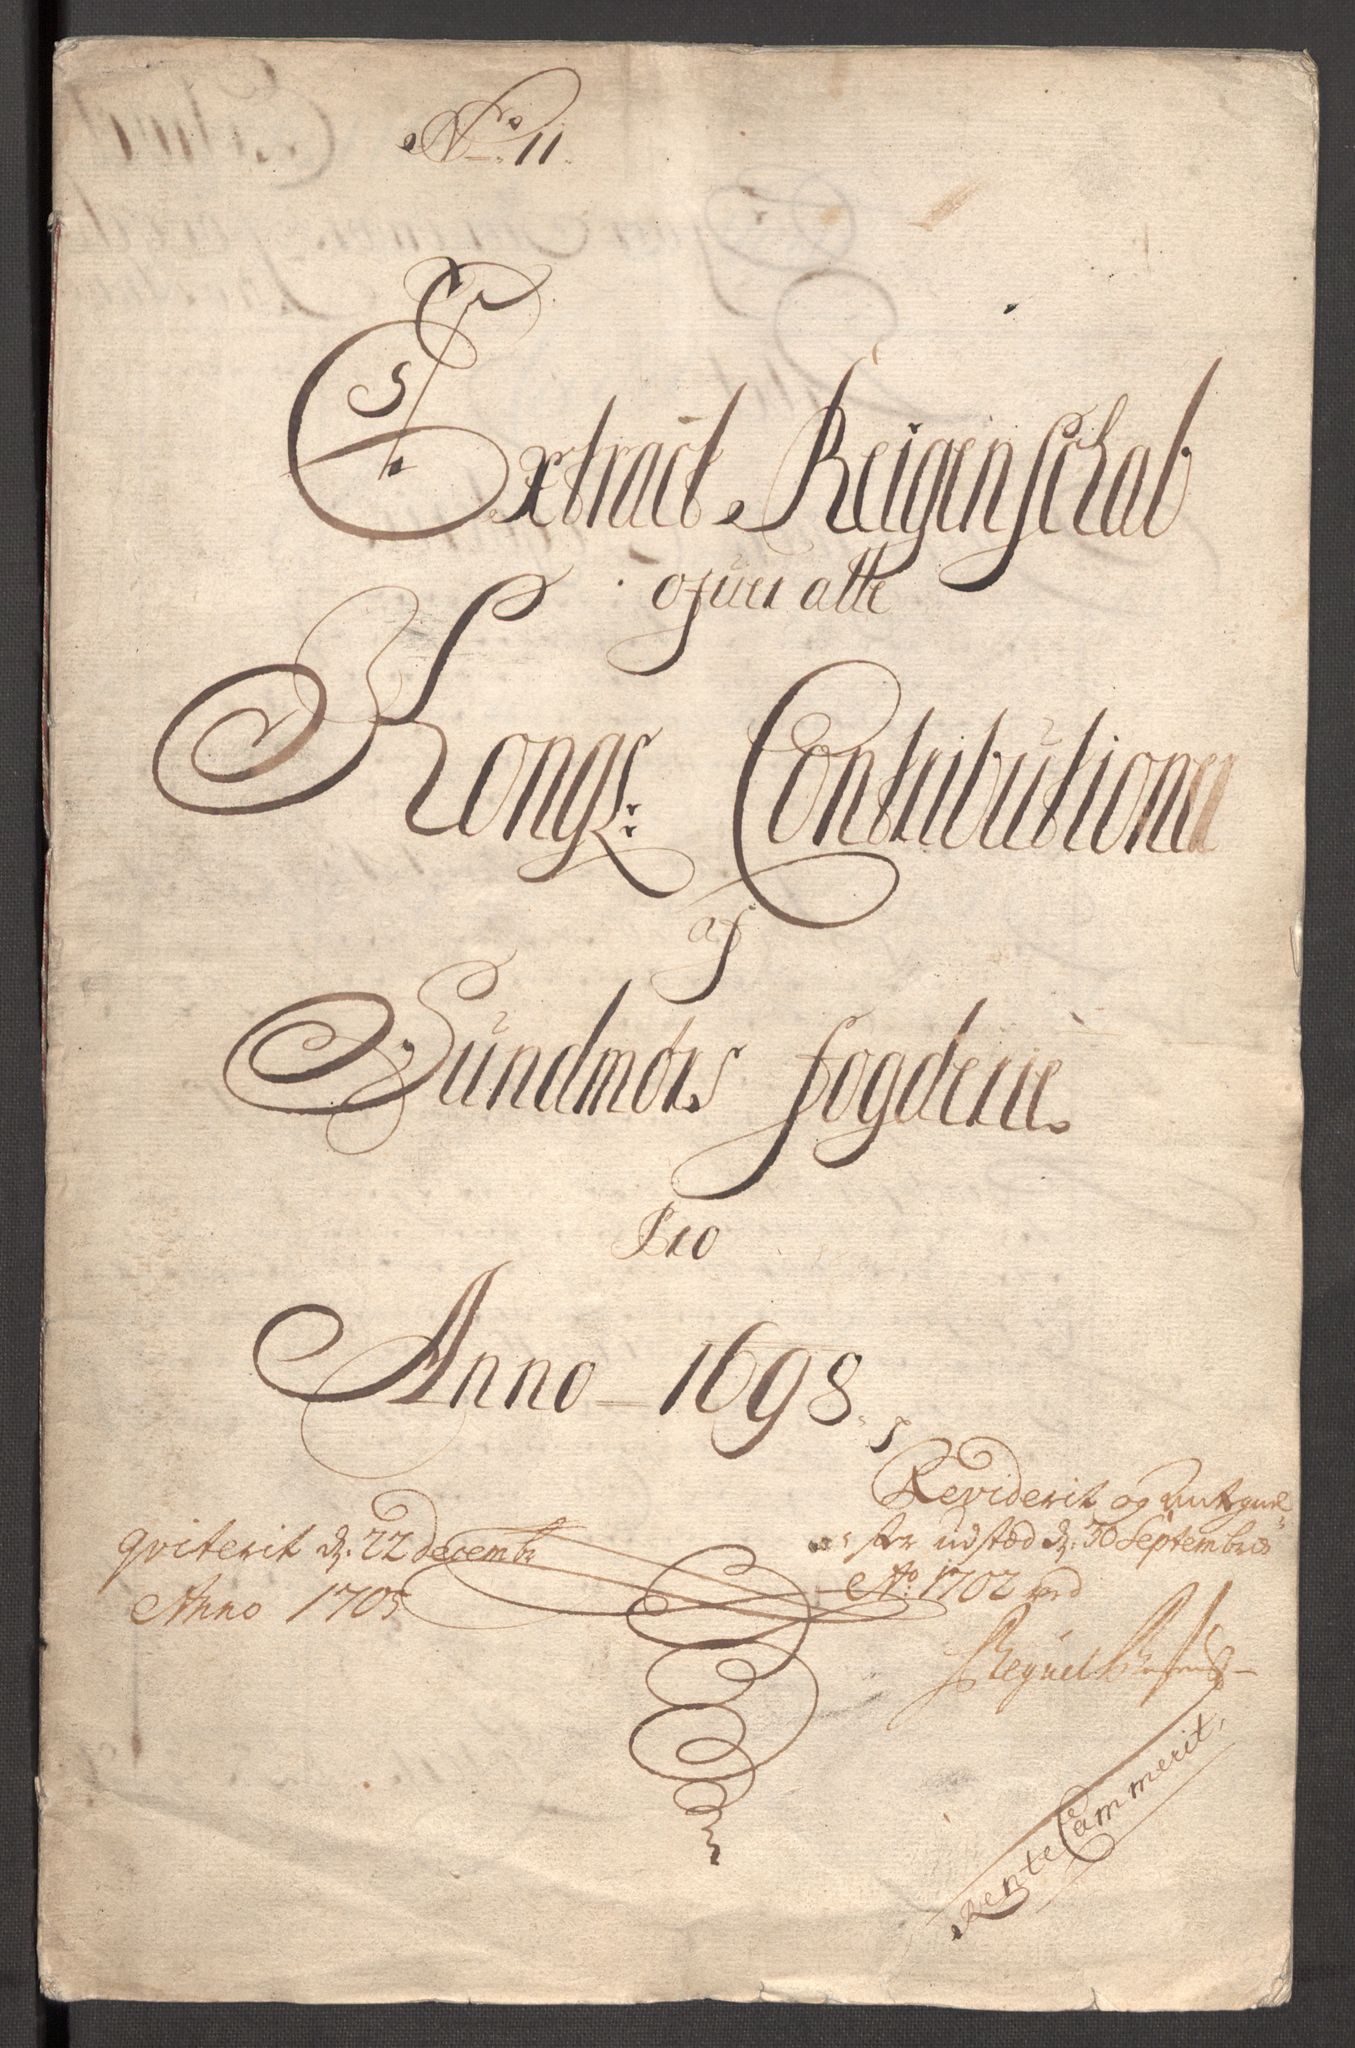 No. 11.
Extract Reigenschab
ofuer alle
Kongs: Contributioner
af
Sundmørs fogderie.
Pro
Anno 1698.
qviterit d. 22 Decembr
Anno 1705
Reviderit og Antegnel
ser udstæd d. 30 Septembris
Ao. 1702 ved
Rente Cammerit,